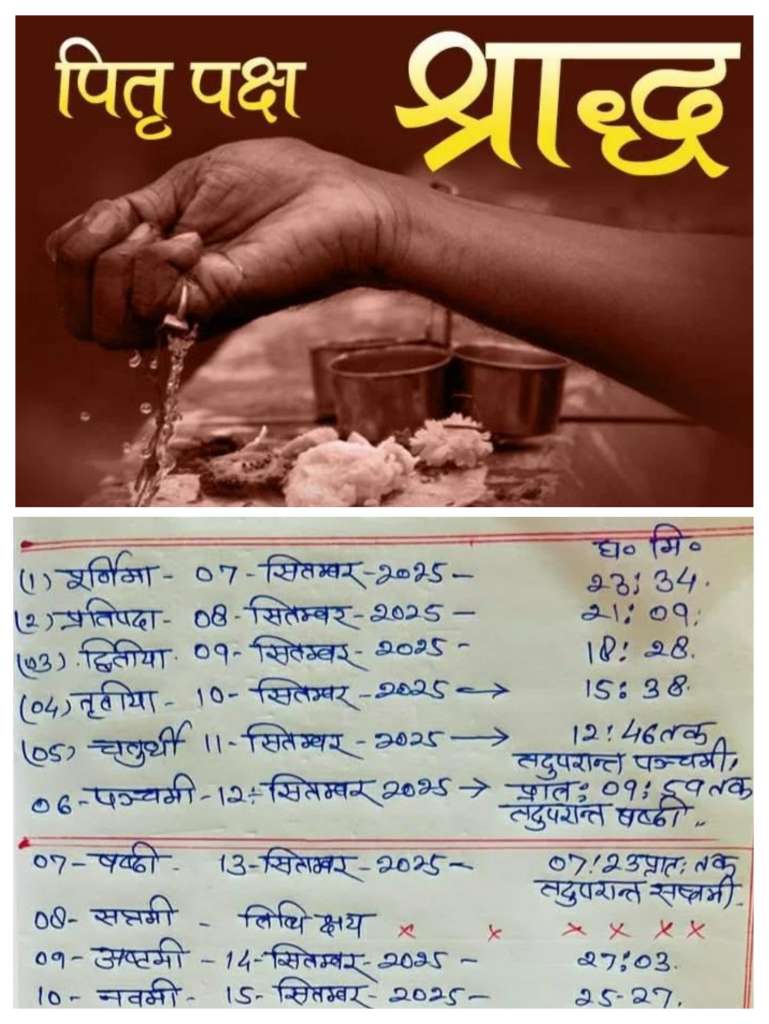 पितृ पक्ष श्राद्ध
घ० मि०
(1) पूर्णिमा - 07 - सितम्बर - 2025 - 23:34.
(2) प्रतिपदा - 08 - सितम्बर - 2025 - 21:09.
(03). द्वितीया. 09 - सितम्बर - 2025 - 18:28.
(04) तृतीया - 10 - सितम्बर - 2025 → 15:38.
(05) चतुर्थी 11 - सितम्बर - 2025 → 12:46 तक
तदुपरान्त पञ्चमी,
06 - पञ्चमी - 12 - सितम्बर 2025 → प्रातः 09:59 तक
तदुपरान्त षष्ठी..
07 - षष्ठी. 13 - सितम्बर - 2025 - 07:23 प्रातः तक
तदुपरान्त सप्तमी.
08 - सप्तमी - तिथि क्षय x x x x x x
09 - अष्टमी - 14 - सितम्बर - 2025 - 27:03.
10 - नवमी - 15 - सितम्बर - 2025 - 25-27.